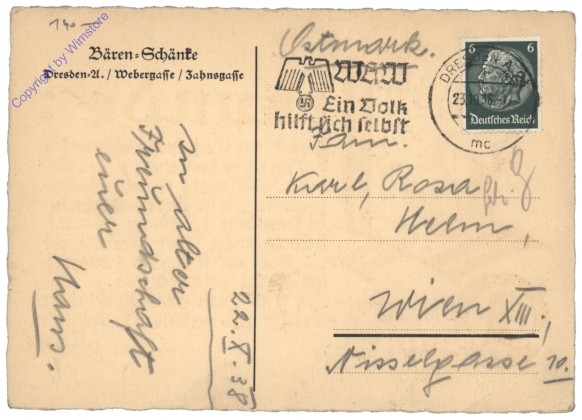 140.-
Copyright by Wimstore
Bären-Schänke
Dresden-A. / Webergasse / Zahnsgasse
In alter
Freundschaft
euer
Hans.
22.X.38
Ostmark.
WHW
Ein Volk
hilft sich selbst
DRESDEN A
23.10.38
mc
6 6
Deutsches Reich
Fam.
Karl, Rosa
Helm,
Wien XIII,
Nisselgasse 10.